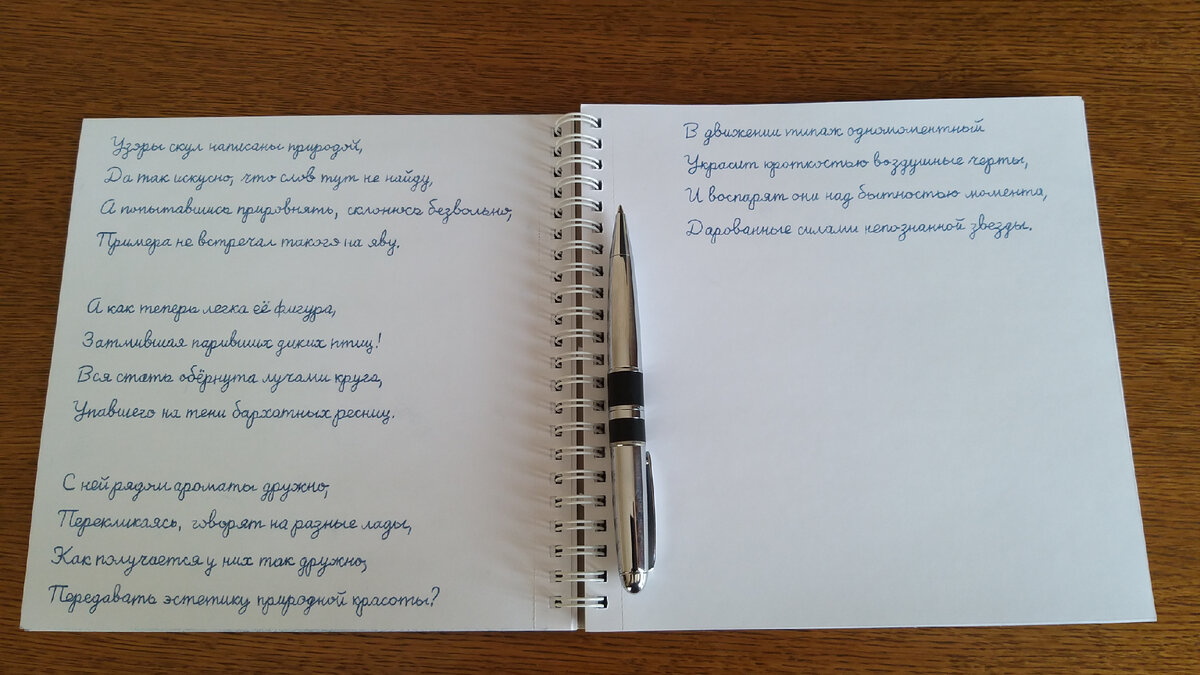 Узоры скул написаны природой,
Да так искусно, что слов тут не найду,
А попытавшись прировнять, склонюсь безвольно,
Примера не встречал такого на яву.
А как теперь легка её фигура,
Затмившая паривших диких птиц!
Вся стать обёрнута лучами круга,
Упавшего на тени бархатных ресниц.
С ней рядом ароматы дружно,
Перекликаясь, говорят на разные лады,
Как получается у них так дружно,
Передавать эстетику природной красоты?
В движении типаж одномоментный
Украсит кроткостью воздушные черты,
И воспарят они над бытностью момента,
Дарованные силами непознанной звезды.